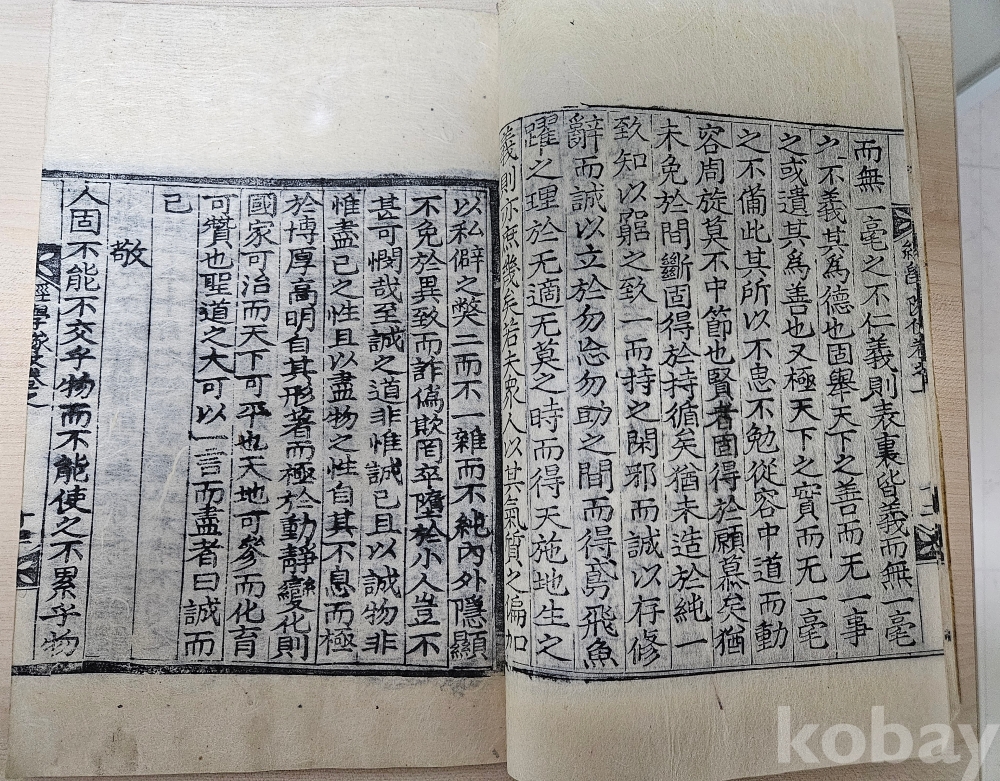 而無一毫之不仁義則表裏皆義而無一毫
之不義其爲德也固舉天下之善而无一事
之或遺其爲善也又極天下之實而无一毫
之不備此其所以不思不勉從容中道而動
容周旋莫不中節也賢者固得於願慕矣猶
未免於間斷固得於持循矣猶未造於純一
致知以窮之致一而持之閑邪而誠以存修
辭而誠以立於勿忘勿助之間而得鳶飛魚
躍之理於无適无莫之時而得天施地生之
義則亦庶幾矣若夫衆人以其氣質之偏加
以私僻之獘二而不一雜而不純內外隱顯
不免於異致而詐僞欺罔卒墮於小人豈不
甚可憫哉至誠之道非惟誠己且以誠物非
惟盡己之性且以盡物之性自其不息而極
於博厚高明自其形著而極於動靜變化則
國家可治而天下可平也天地可參而化育
可贊也聖道之大可以一言而盡者曰誠而
已
敬
人固不能不交乎物而不能使之不累乎物
kobay